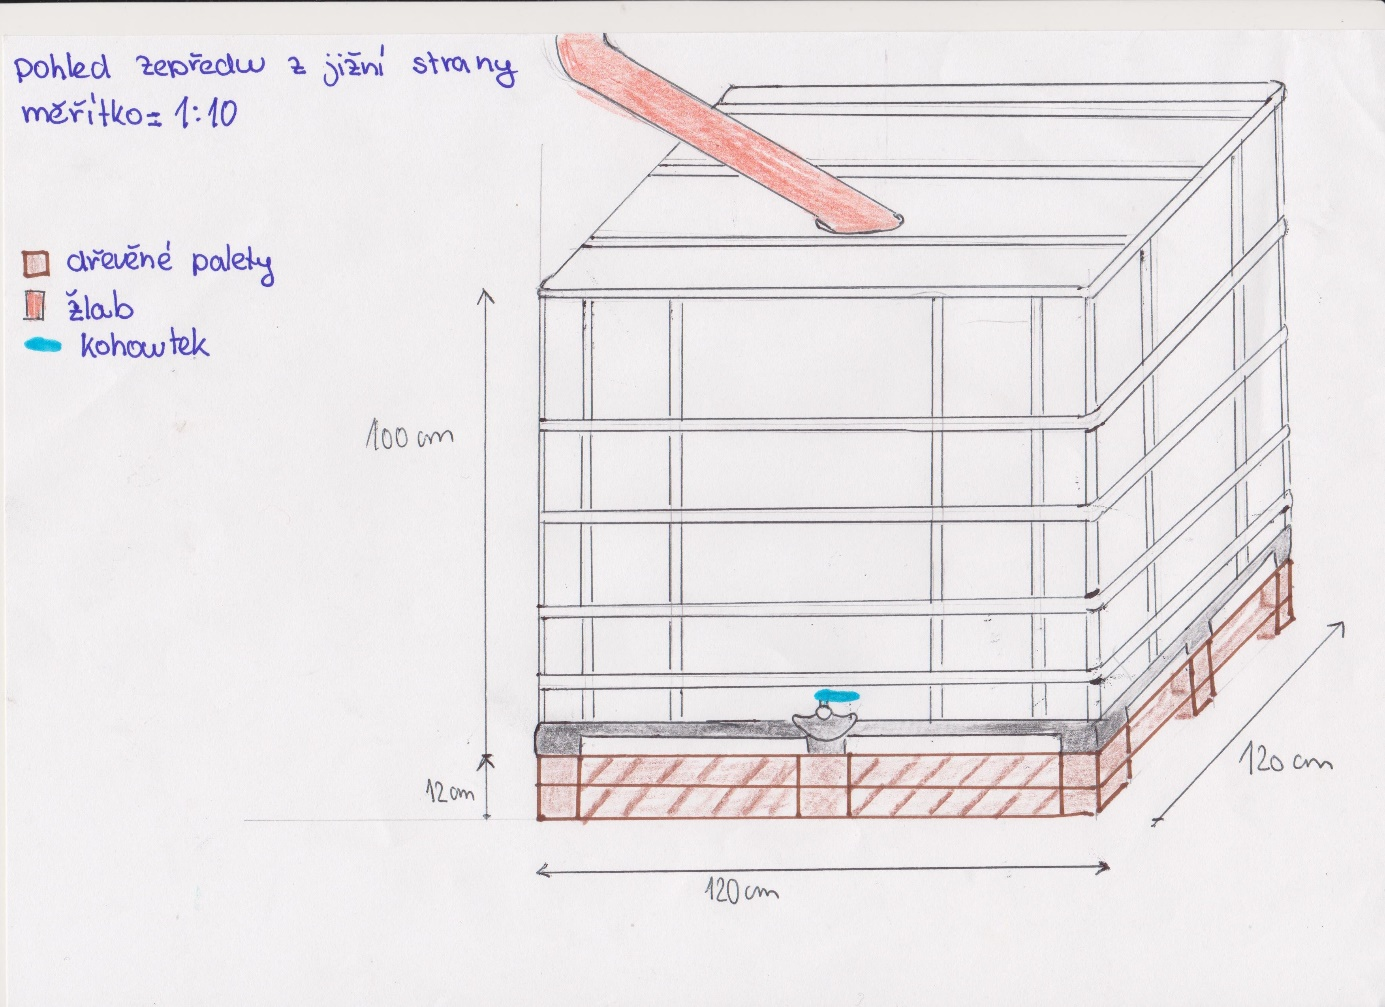 pohled zepředu z jižní strany
měřítko = 1:10
dřevěné palety
žlab
kohoutek
100 cm
12 cm
120 cm
120 cm